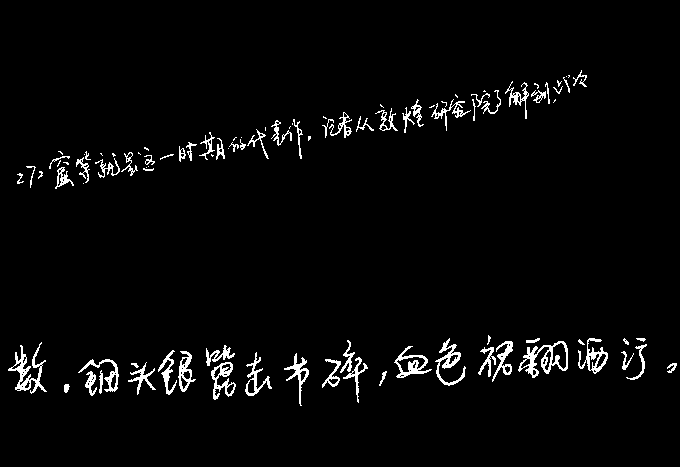 272窟等就是这一时期的代表作。记者从敦煌研究院了解到,此次
数。钿头银篦击节碎,血色裙翻酒污。